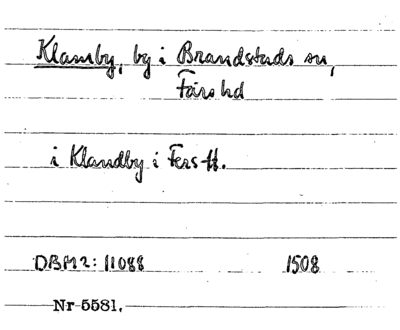 Klamby, by i Brandstads sn,
Färs hd
i Klandby i Fers H.
DBM2: 11088 1508
Nr 5581.